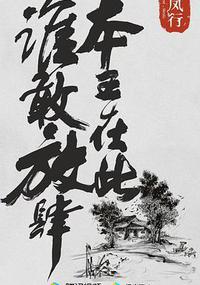 本王在此
谁敢放肆
凤行